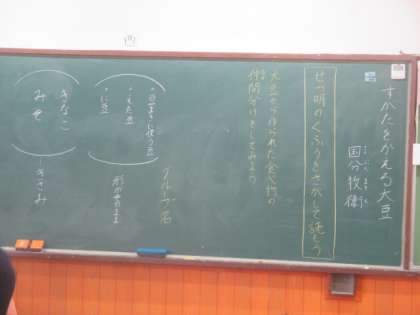 すがたをかえる大豆
国分牧衛
こくぶ まきえ
せつ明のくふうをさがして読もう
大豆から作られた食べ物の
仲間分けをしてみよう
グループ名
・豆まきに使う豆
・に豆
形がそのまま
きなこ
みそ